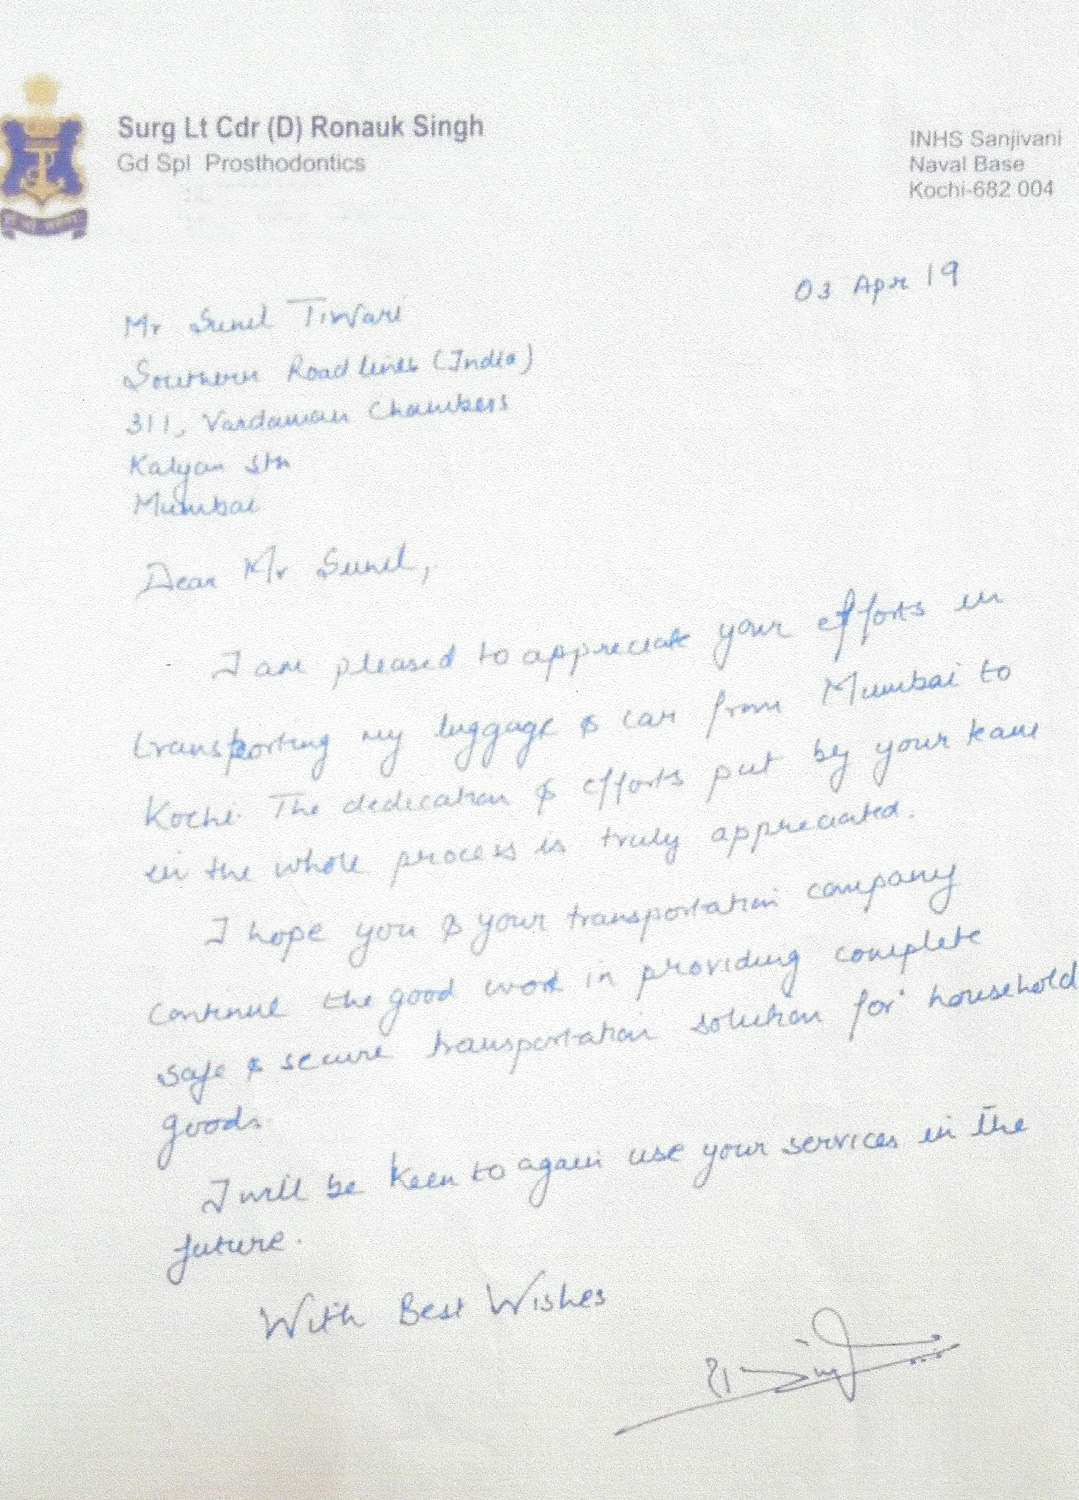 Surg Lt Cdr (D) Ronauk Singh
Gd Spl Prosthodontics
INHS Sanjivani
Naval Base
Kochi-682 004
03 Apr 19
Mr Sunil Tiwari
Southern Roadlines (India)
311, Vardaman Chambers
Kalyan Stn
Mumbai
Dear Mr Sunil,
I am pleased to appreciate your efforts in
transporting my luggage & car from Mumbai to
Kochi. The dedication & efforts put by your team
in the whole process is truly appreciated.
I hope you & your transportation company
continue the good work in providing complete
safe & secure transportation solution for household
goods.
I will be keen to again use your services in the
future.
With Best Wishes